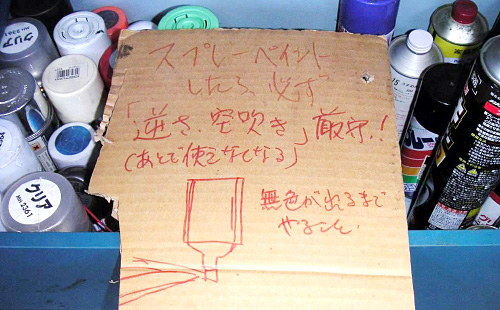 スプレーペイント
したら、必ず
「逆さ、空吹き」厳守!
(あとで使えなくなる)
無色が出るまで
やること.
クリア
クリア
No 2361